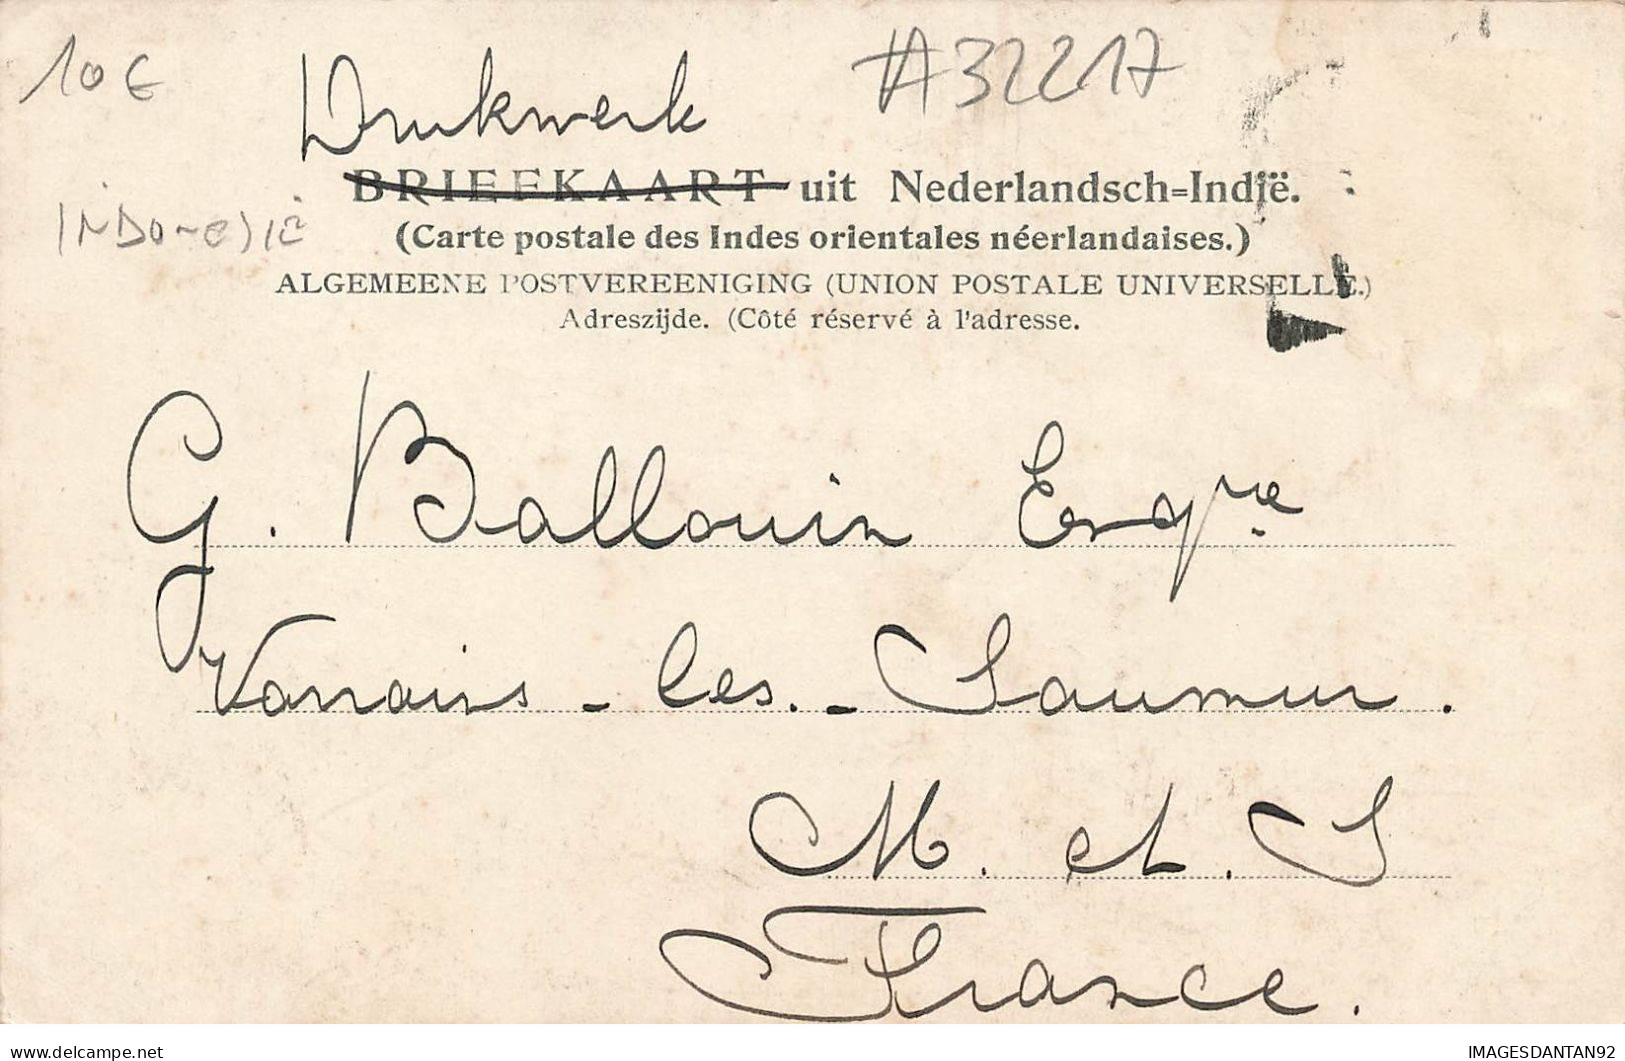 10 €
#32217
Drukwerk
BRIEFKAART uit Nederlandsch=Indië.
INDONESIE
(Carte postale des Indes orientales néerlandaises.)
ALGEMEENE POSTVEREENIGING (UNION POSTALE UNIVERSELLE.)
Adreszijde. (Côté réservé à l'adresse.
G. Ballouin Esqre
Varrains - les. - Saumur.
M. et. S
France.
delcampe.net
IMAGESDANTAN92